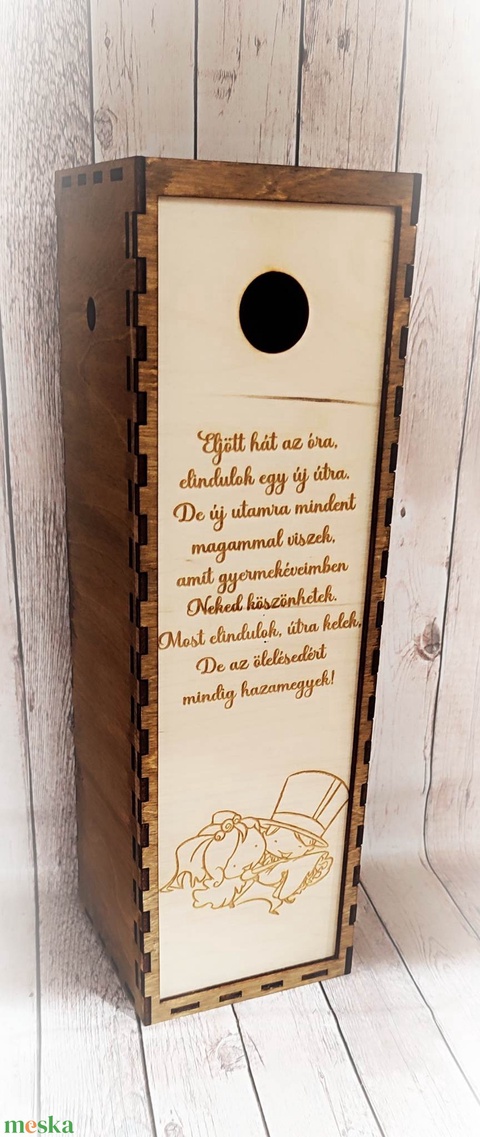 Eljött hát az óra,
elindulok egy új útra.
De új utamra mindent
magammal viszek,
amit gyermekéveimben
Neked köszönhetek.
Most elindulok, útra kelek,
De az ölelésedért
mindig hazamegyek!
meska